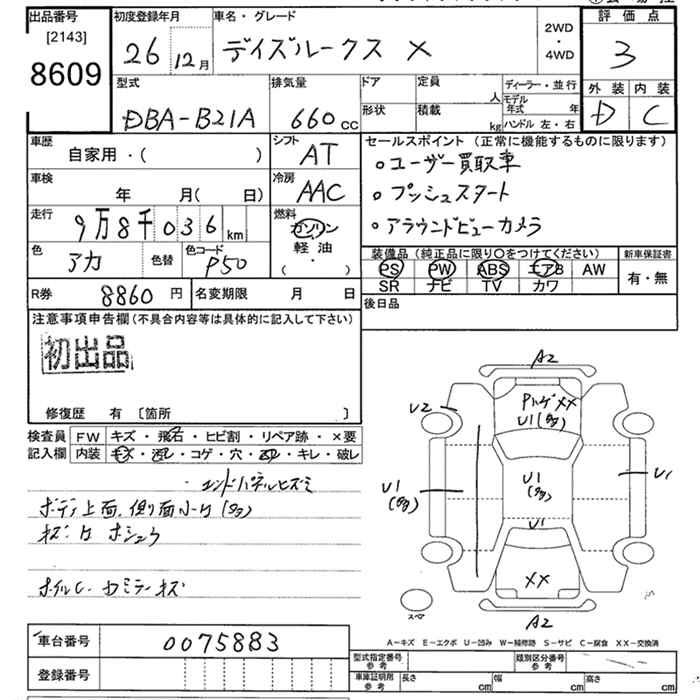 出品番号
[2143]
8609
初度登録年月
26 12月
車名・グレード
デイズルークス X
2WD
・
4WD
評価点
3
外装 内装
D C
型式
DBA-B21A
排気量
660 cc
ドア
形状
定員 人
積載 kg
ディーラー・並行
モデル年式 年
ハンドル 左・右
車歴
自家用・( )
シフト
AT
車検
年 月( 日)
冷房
AAC
走行
9万8千036 km
燃料
ガソリン
軽油
( ・ )
色
アカ
色替
色コード
P50
R券 8860 円
名変期限 月 日
セールスポイント (正常に機能するものに限ります)
○ユーザー買取車
○プッシュスタート
○アラウンドビューカメラ
装備品 (純正品に限り○をつけてください)
PS PW ABS エアB AW
SR ナビ TV カワ
新車保証書
有・無
後日品
注意事項申告欄 (不具合内容等は具体的に記入して下さい)
初出品
修復歴 有 [箇所 ]
検査員記入欄
FW キズ・飛石・ヒビ割・リペア跡・×要
内装 キズ・汚レ・コゲ・穴・凹レ・キレ・破レ
・エンドパネルヒズミ
ボディ上面、側面小U(多)
キズ・U ホシュウ
ホイルC. Dミラーキズ
A2
PハゲXX
U1(多)
U2
U1
(多)
U1
(多)
U1
U1
XX
A2
スペア
A-キズ E-エクボ U-凹み W-補修跡 S-サビ C-腐食 XX-交換済
車台番号 0075883
登録番号
型式指定番号 参考
類別区分番号 参考
車庫証明用 参考
長さ cm
幅 cm
高さ cm